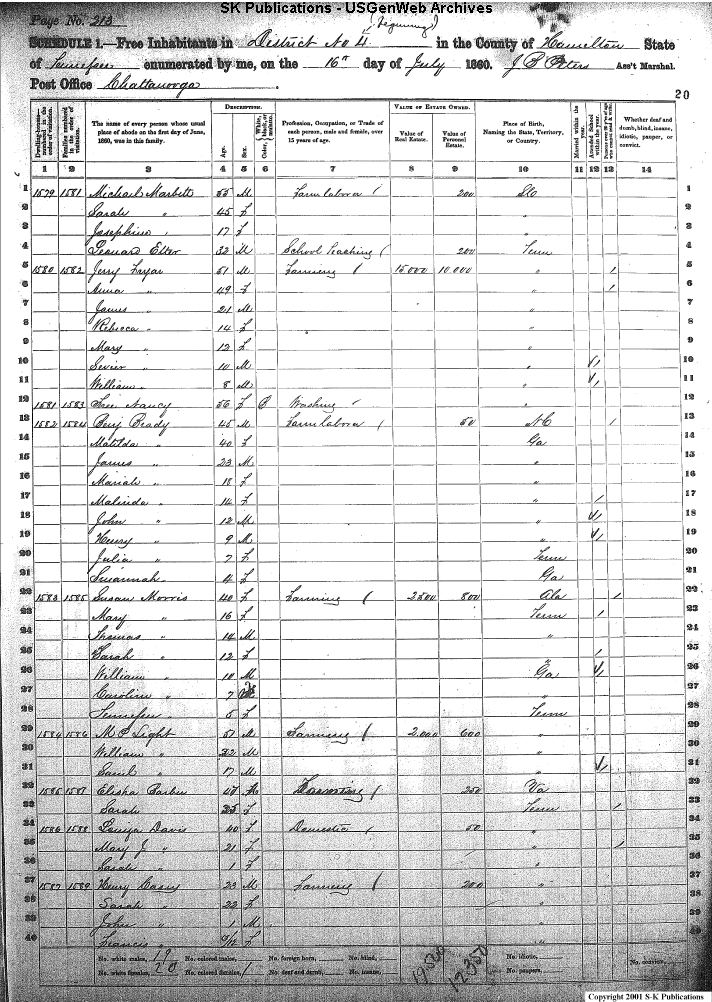 SK Publications - USGenWeb Archives
Page No. 213
SCHEDULE 1.—Free Inhabitants in District No 4 in the County of Hamilton State
of Tennessee enumerated by me, on the 16th day of July 1860. J B Peters Ass't Marshal.
Post Office Chattanooga
20
DESCRIPTION. VALUE OF ESTATE OWNED.
Dwelling-houses—numbered in the order of visitation. Families numbered in the order of visitation. The name of every person whose usual place of abode on the first day of June, 1860, was in this family. Age. Sex. Color, White, black, or mulatto. Profession, Occupation, or Trade of each person, male and female, over 15 years of age. Value of Real Estate. Value of Personal Estate. Place of Birth, Naming the State, Territory, or Country. Married within the year. Attended School within the year. Whether deaf and dumb, blind, insane, idiotic, pauper, or convict.
1 2 3 4 5 6 7 8 9 10 11 12 13 14
1 1579 1581 Michael Marbett 55 M Farm labor 200 1
2 Sarah " 45 f " 2
3 Josephine " 17 f " 3
4 Leonard Elter 32 M School Teaching 200 Tenn 4
5 1580 1582 Jerry Fryar 51 M Farming 15,000 10,000 " / 5
6 Anna " 49 f " / 6
7 James " 21 M " 7
8 Rebecca " 14 f " 8
9 Mary " 12 f " 9
10 Sevier " 10 M " / 10
11 William " 8 M " / 11
12 1581 1583 Free Nancy 56 f Washing " 12
13 1582 1584 Berry Brady 45 M Farm labor 50 NC / 13
14 Matilda " 40 f Ga 14
15 James " 23 M " 15
16 Mariah " 18 f " 16
17 Malinda " 14 f " / 17
18 John " 12 M " / 18
19 Henry " 9 M " / 19
20 Julia " 7 f Tenn 20
21 Susannah 4 f Ga 21
22 1583 1585 Susan Morris 40 f Farming 2500 800 Ala / 22
23 Mary " 16 f Tenn / 23
24 Thomas " 14 M " 24
25 Sarah " 12 f " / 25
26 William " 10 M Ga / 26
27 Caroline " 7 " 27
28 Tennessee " 5 f Tenn 28
29 1584 1586 M C Light 51 M Farming 2,000 600 " 29
30 William " 22 M " 30
31 Saml " 17 M " / 31
32 1585 1587 Elisha Barbee 47 M Farming 250 Va 32
33 Sarah " 35 f Tenn / 33
34 1586 1588 Louiza Davis 40 f Domestic 50 " 34
35 Mary J " 21 f " / 35
36 Sarah " 1 f " 36
37 1587 1589 Henry Casey 23 M Farming 200 " 37
38 Sarah " 22 f " 38
39 John " 1 M " 39
40 Francis " /12 f " 40
No. white males, 19 No. colored males, No. foreign born, No. blind, 19500 12350 No. idiotic, No. convict,
No. white females, 20 No. colored females, 1 No. deaf and dumb, No. insane, No. paupers,
Copyright 2001 S-K Publications